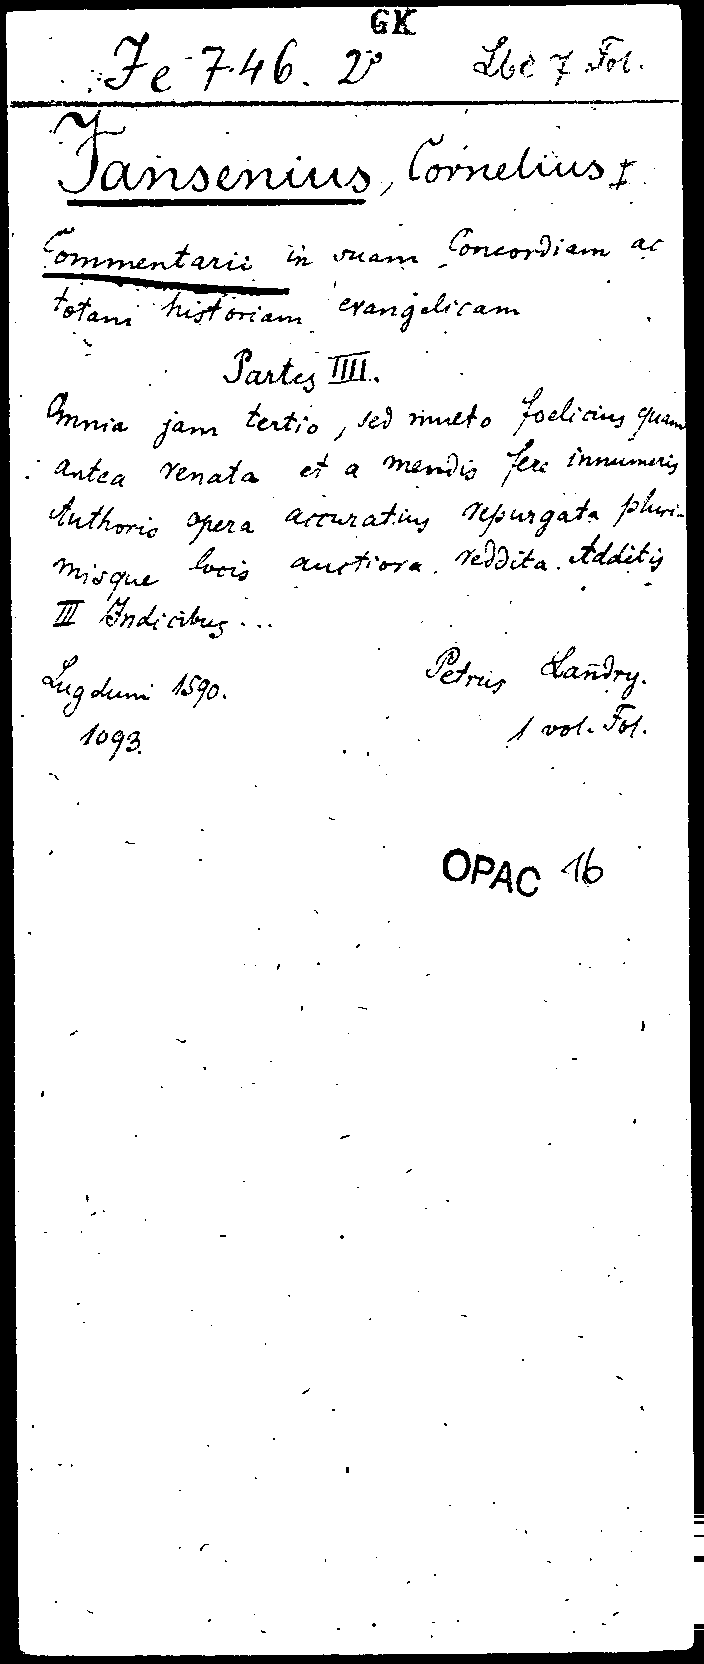 GK
Je 746. 2° Lbe 7 Fol.
Jansenius, Cornelius I
Commentarii in suam Concordiam ac
totam historiam evangelicam
Partes IIII.
Omnia jam tertio, sed multo foelicius quam
antea renata et a mendis fere innumeris
Authoris opera accuratius repurgata pluri-
misque locis auctiora reddita. Additis
III Indicibus ...
Lugduni 1590. Petrus Landry.
1093. 1 vol. Fol.
OPAC 16